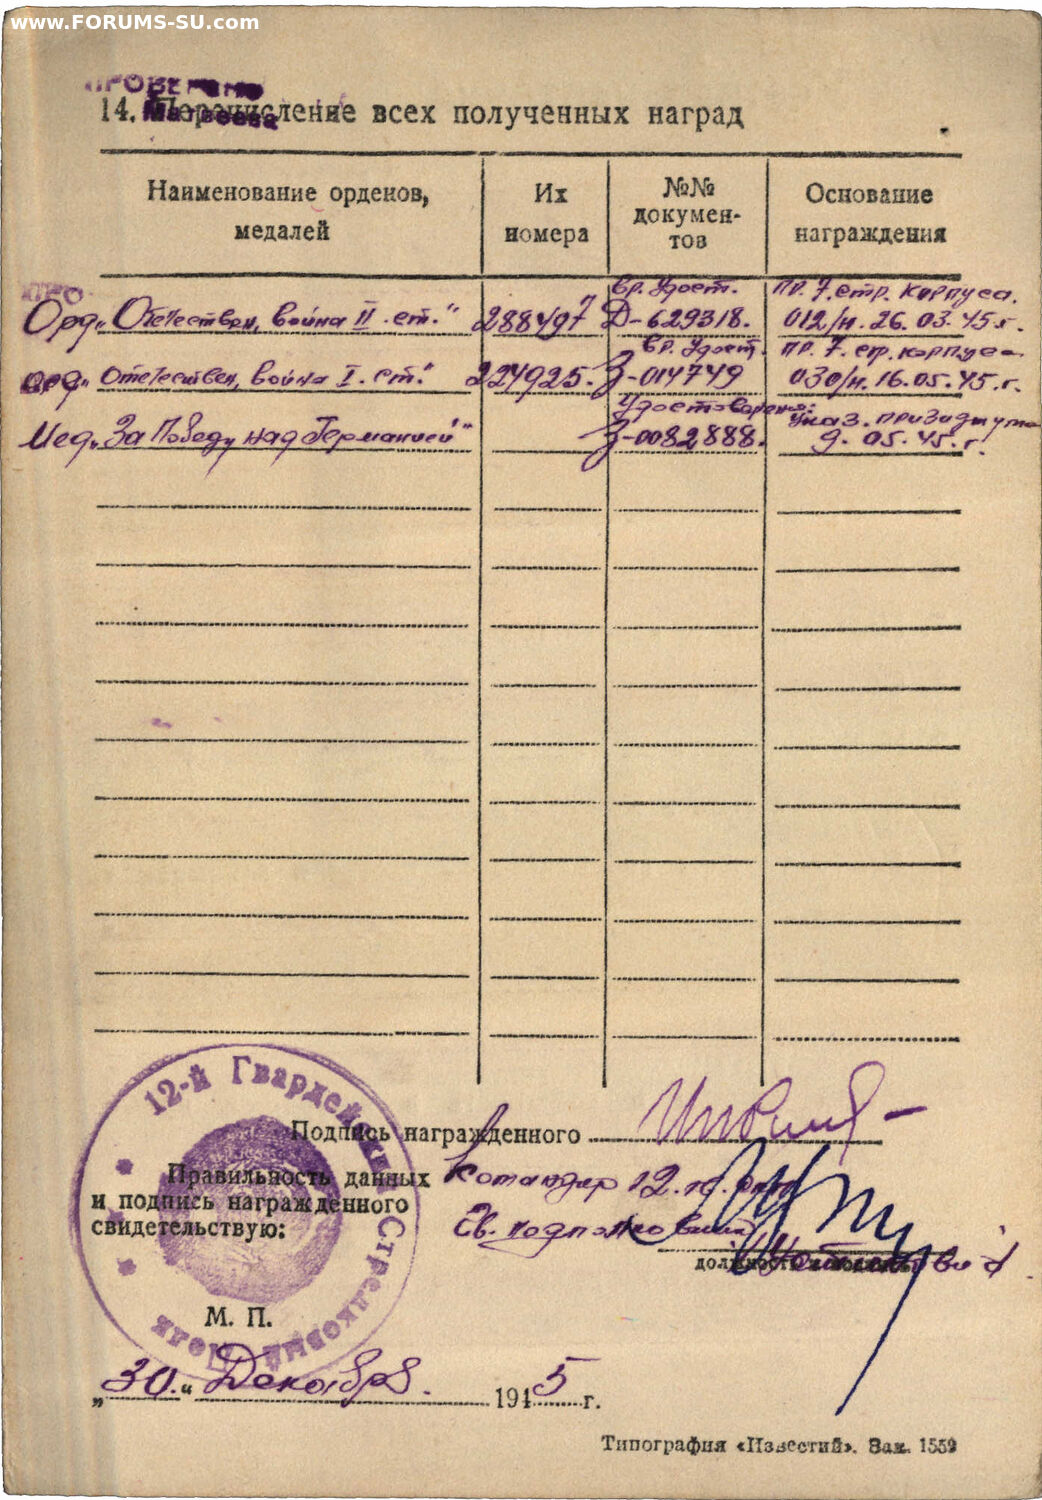 www.FORUMS-SU.com
ПРОВЕРЕНО
Матвеева
14. Перечисление всех полученных наград
Наименование орденов, медалей
Их номера
№№ докумен-тов
Основание награждения
Орд. „Отечествен, война II ст." 288497 Вр. Удост. Д-629318. Пр. 7. стр. корпуса. 012/н. 26.03.45 г.
орд „Отечествен, война I. ст." 224925. Вр. Удост. З-014749 Пр. 7. стр. корпуса 030/н. 16.05.45. г.
Мед „За Победу над Германией" З-0082888. Указ. 9.05.45. г.
12-й Гвардейский Стрелковый Полк
Подпись награжденного
Правильность данных
и подпись награжденного
свидетельствую:
Командир 12.
Гв. подполковник
должность
М. П.
„30." Декабря. 1945 г.
Типография «Известий». Зак. 1559